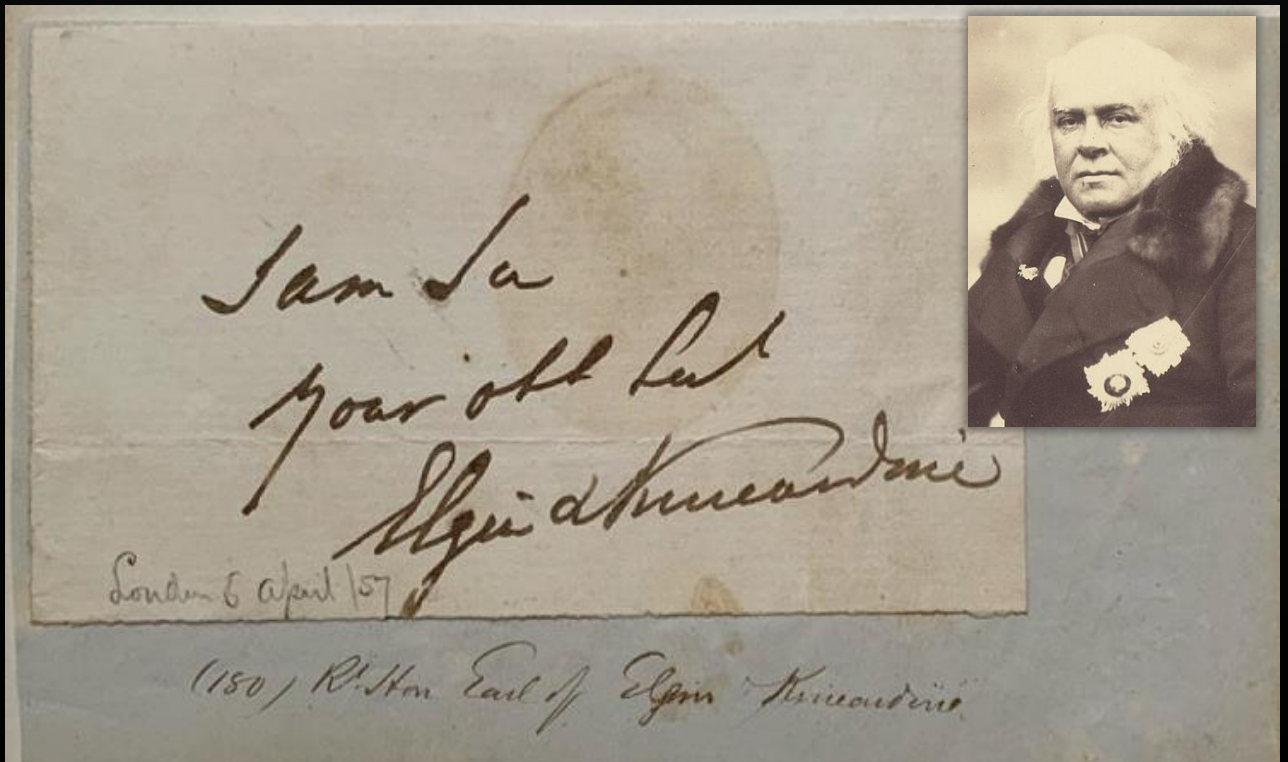 I am Sir
Your obt Sert
Elgin & Kincardine
London 6 april /57
(180) Rt Hon Earl of Elgin Kincardine